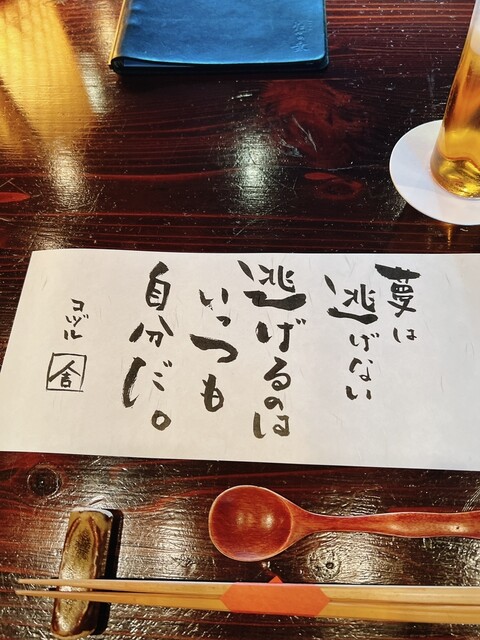 夢は
逃げない
逃げるのは
いつも
自分だ。
コヅル
舎